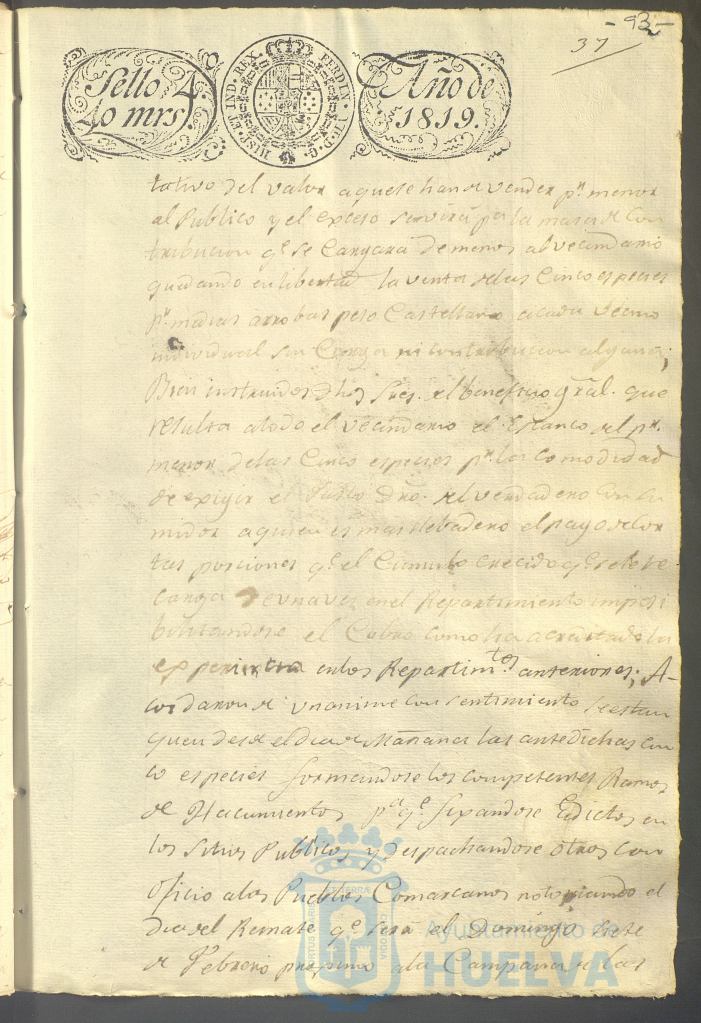 -93-
37
Sello 4.
40 mrs.
HISP. ET IND. REX. FERDIN. VII. D. G.
Año de
1819.
tativo del valor a que se han de vender pr. menor
al Publico y el exceso servira pa. la masa de Con
tribucion qe. se Cargará de menos al vecindario
quedando en libertad la venta de las Cinco especies
pr. maias arrobas peso Castellano a cada vecino
individual sin Carga ni contribucion alguna;
Bien instruidos dhos. Sres. del beneficio gral. que
resulta a todo el vecindario el Estanco del pr.
menor de las Cinco especies pr. la Comodidad
de exigir el Dro. del verdadero Consu
midor a quien es mas llebadero el pago de Cor
tas porciones qe. el Cumulo Crecido qe. se le re
carga de una vez en el Repartimiento imposi
bilitandose el Cobro como ha acreditado la
experiencia en los Repartimtos. anteriores; A-
cordaron de unanime consentimiento se estan
quen desde el dia de Mañana las antedichas Cin
co especies formandose los competentes Ramos
de Hacimientos pa. qe. fixandose Edictos en
los Sitios Publicos y despachandose otros con
Oficio a los Pueblos Comarcanos noticiando el
dia del Remate qe. será el Domingo Siete
de Febrero proximo a la Campana de las
PORTUS MARIS ET TERRAE CUSTODIA
Ayuntamiento de
HUELVA